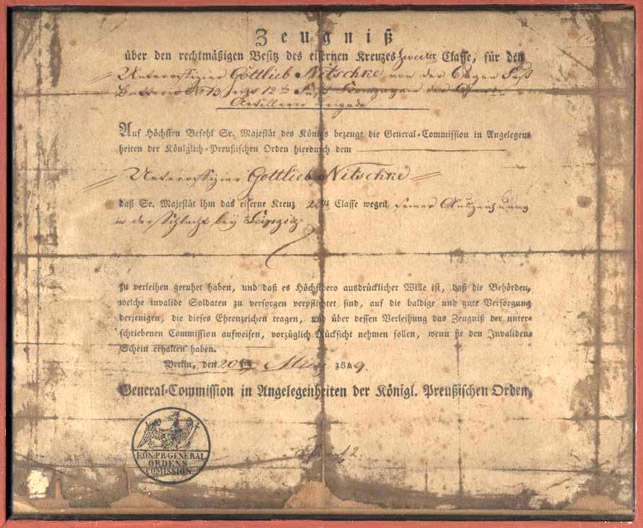 Zeugniß
über den rechtmäßigen Besitz des eisernen Kreuzes zweiter Classe, für den
Unteroffizier Gottlieb Nitschke von der 6 Fuß
12t Fuß Compagnie der Garde
Artillerie Brigade
Auf Höchsten Befehl Sr. Majestät des Königs bezeugt die General-Commission in Angelegen-
heiten der Königlich-Preußischen Orden hierdurch dem
Unteroffizier Gottlieb Nitschke
daß Sr. Majestät ihm das eiserne Kreuz 2ter Classe wegen seiner Auszeichnung
in der Schlacht bey Leipzig
zu verleihen geruhet haben, und daß es Höchstdero ausdrücklicher Wille ist, daß die Behörden,
welche invalide Soldaten zu versorgen verpflichtet sind, auf die baldige und gute Versorgung
derjenigen, die dieses Ehrenzeichen tragen, und über dessen Verleihung das Zeugniß der unter-
schriebenen Commission aufweisen, vorzüglich Rücksicht nehmen sollen, wenn sie den Invaliden-
Schein erhalten haben.
Berlin, den 20ten
General-Commission in Angelegenheiten der Königl. Preußischen Orden.
KÖN:PR:GENERAL
ORDENS
COMISSION